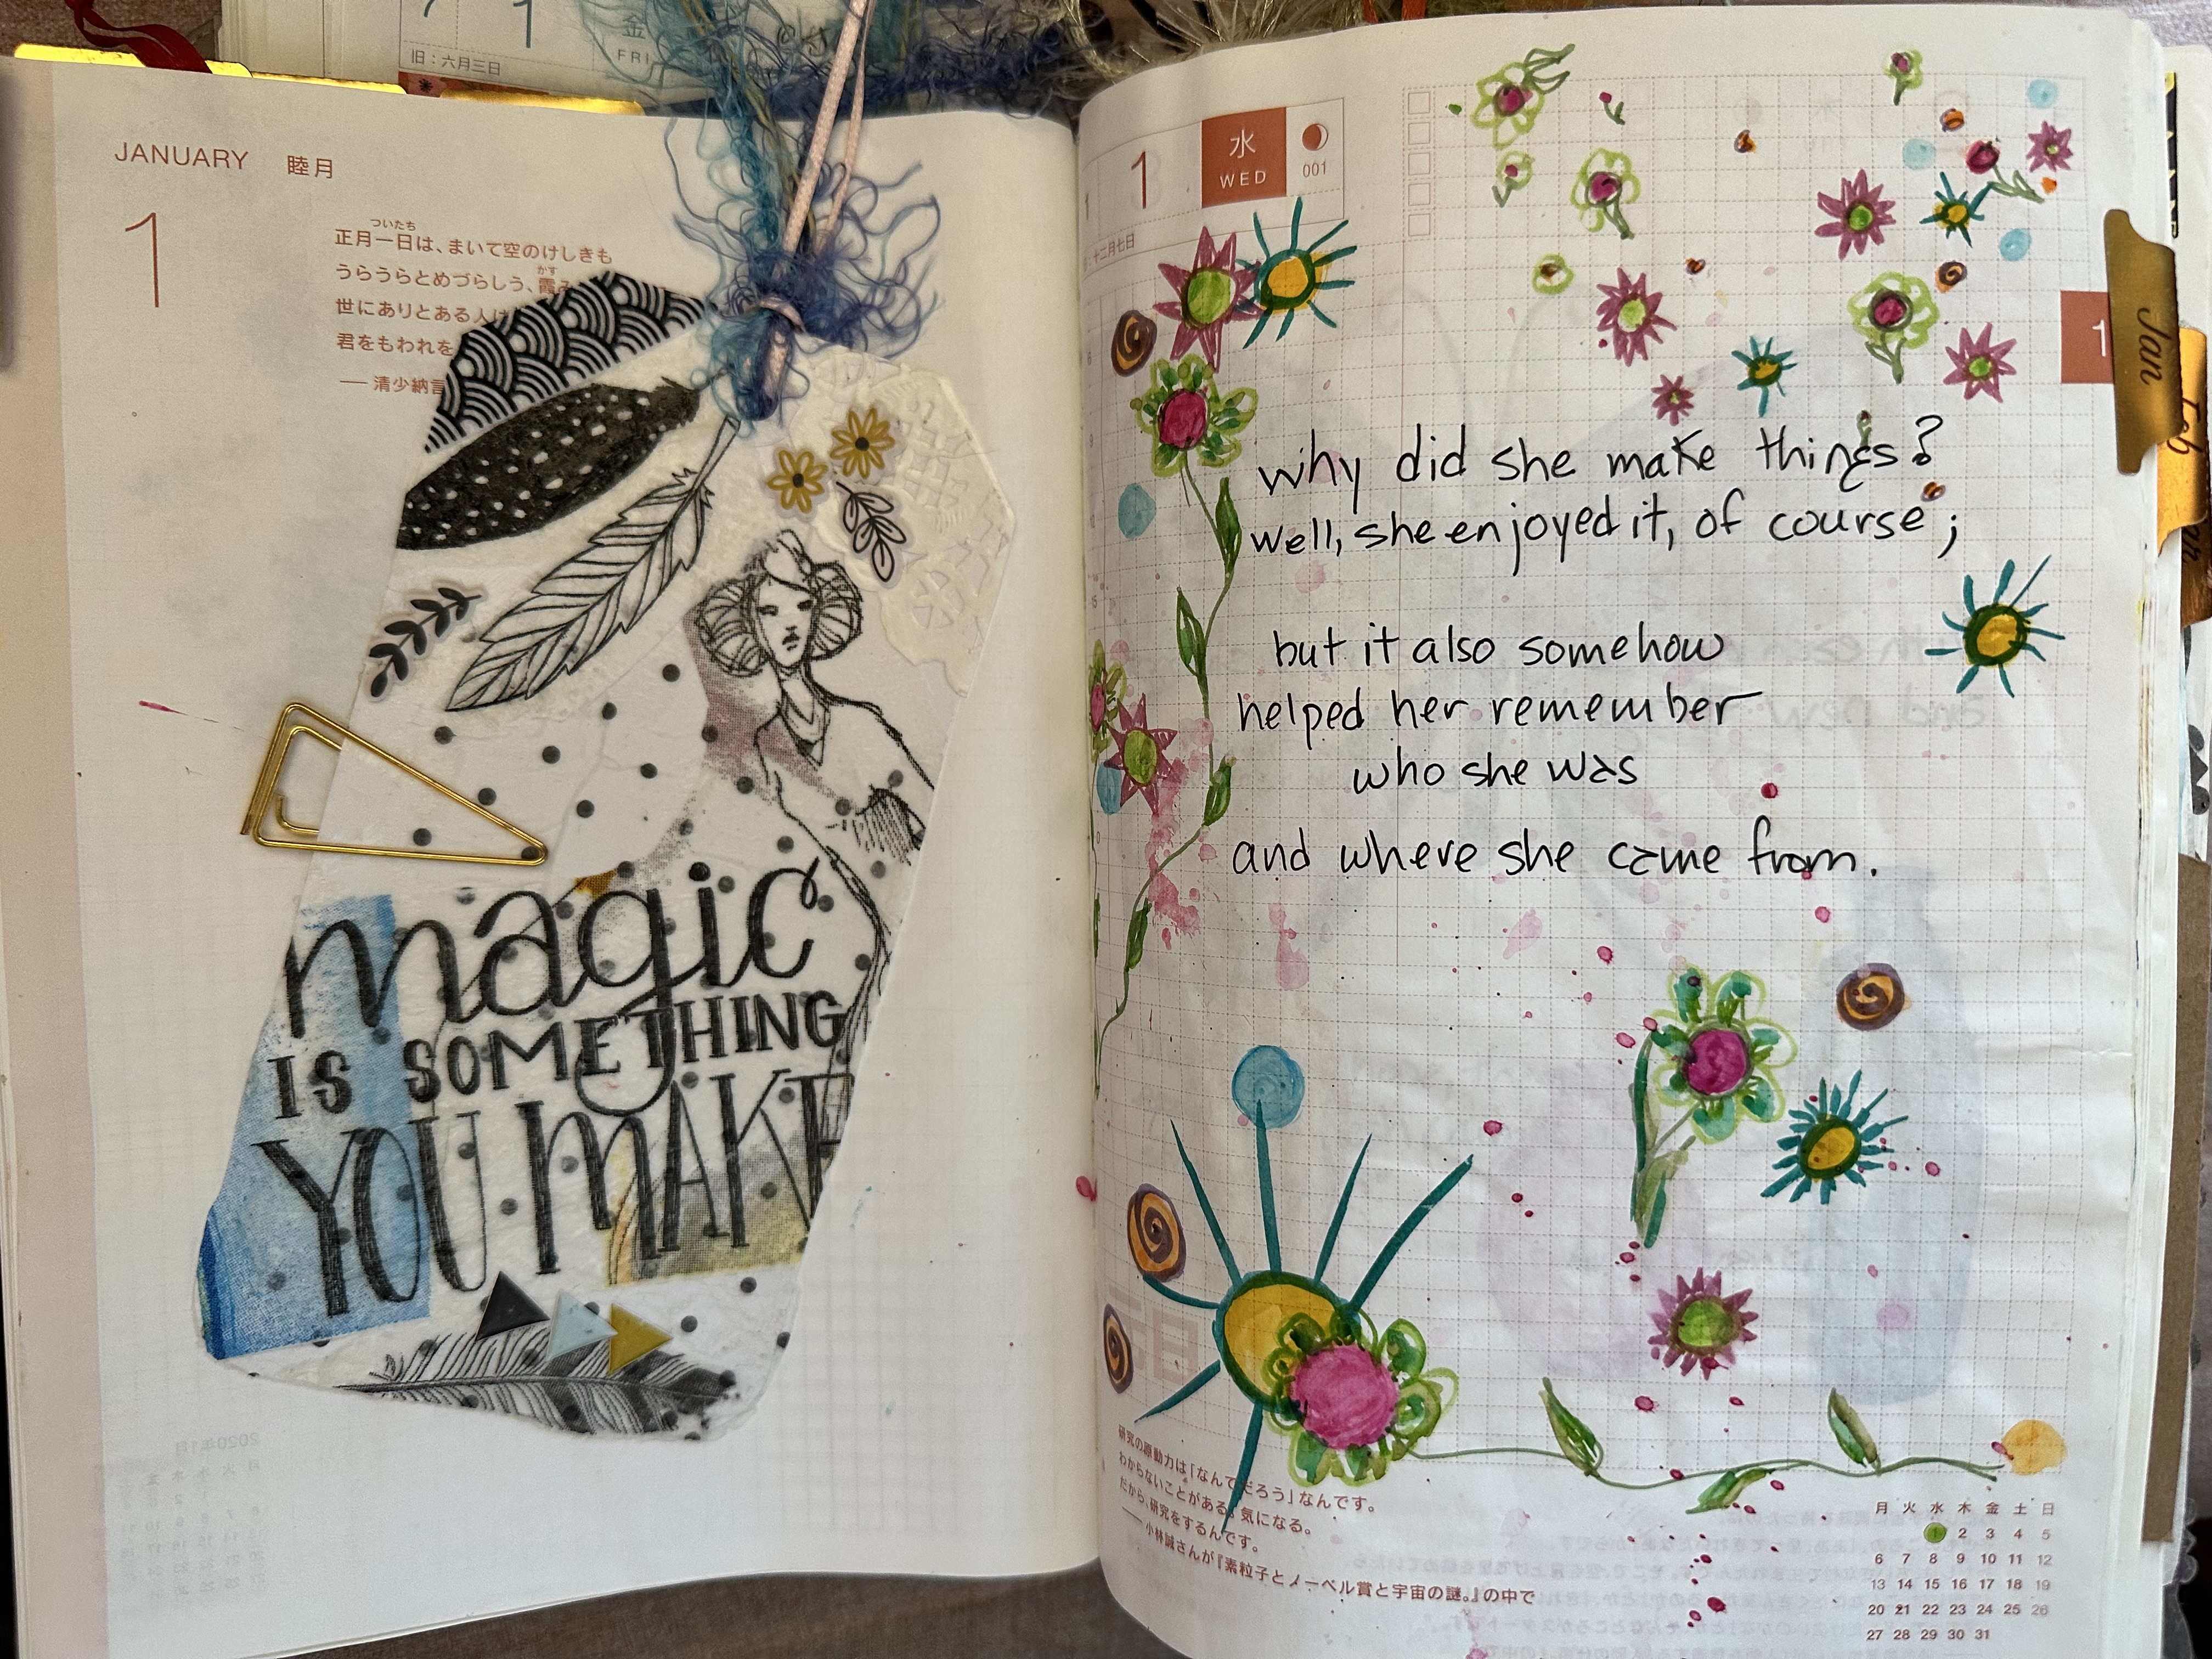 金
FRI
旧:六月三日
JANUARY 睦月
1
正月一日は、まいて空のけしきも
ついたち
うらうらとめづらしう、霞み
かす
世にありとある人は
君をもわれを
── 清少納言
magic
IS SOMETHING
YOU MAKE
1
水
WED
001
十二月七日
1
Jan
Feb
why did she make things?
well, she enjoyed it, of course;
but it also somehow
helped her remember
who she was
and where she came from.
研究の原動力は「なんでだろう」なんです。
わからないことがある。気になる。
だから、研究をするんです。
── 小林誠さんが『素粒子とノーベル賞と宇宙の謎。』の中で
月 火 水 木 金 土 日
1 2 3 4 5
6 7 8 9 10 11 12
13 14 15 16 17 18 19
20 21 22 23 24 25 26
27 28 29 30 31